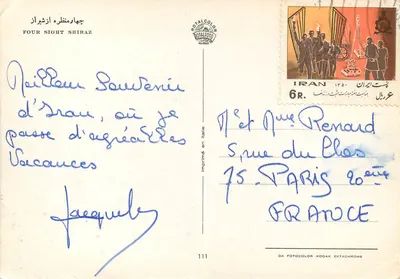 چهار منظره از شیراز
FOUR SIGHT SHIRAZ
ROTALCOLOR
IRAN
۱۳۵۰
6R.
پست ایران
۶ ریال
Meilleur Souvenir
d'Iran, où je
passe d'agréables
Vacances
Jacqueline
Mr et Mme Renard
5, rue du Clos
75. PARIS 20ème
FRANCE
Imprimé en Italie
111
DA FOTOCOLOR KODAK EKTACHROME